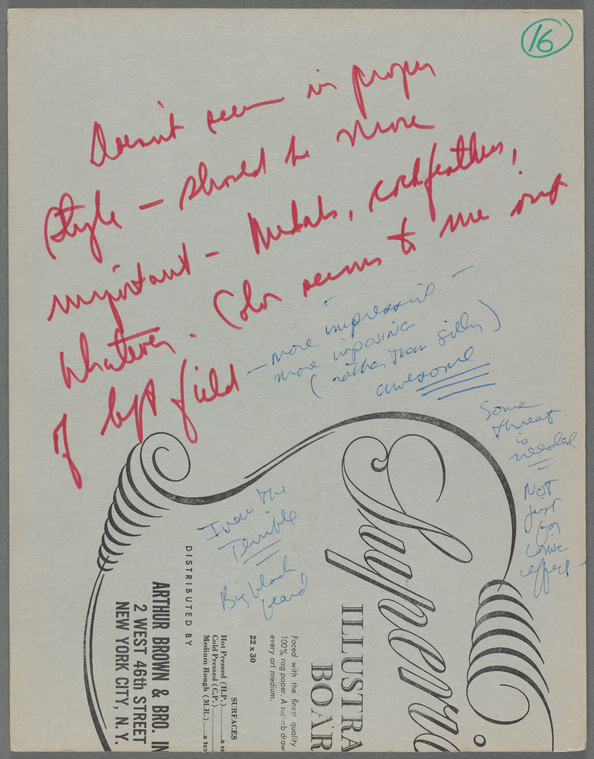 16
Doesn't seem in proper
style — should be more
important — Medals, cockfeathers,
whatever. Color seems to me out
of left field
— more impressive —
more imposing
(rather than silly)
awesome
Some
threat
is
needed
Not
just
for
comic
effect
Ivan the
Terrible
Big black
beard
Superi
ILLUSTRA
BOAR
Faced with the finest quality
100% rag paper. A superb draw
every art medium.
22 x 30
SURFACES
Hot Pressed (H.P.)
Cold Pressed (C.P.)
Medium Rough (M.R.)
DISTRIBUTED BY
ARTHUR BROWN & BRO. IN
2 WEST 46th STREET
NEW YORK CITY, N. Y.